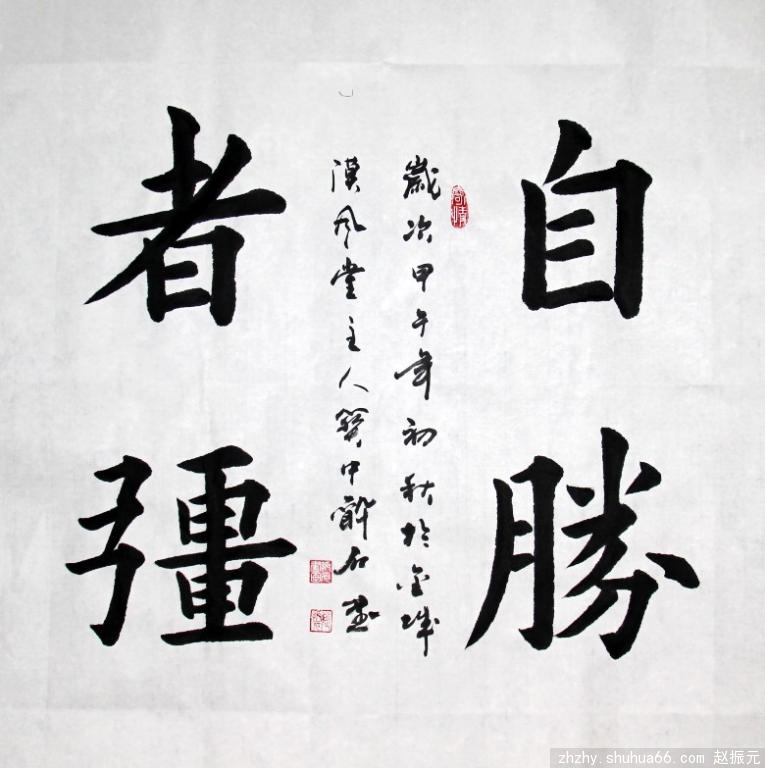 自勝
者彊
歲次甲午年初秋於金城
漢風堂主人中石書
zhzhy.shuhua66.com 赵振元